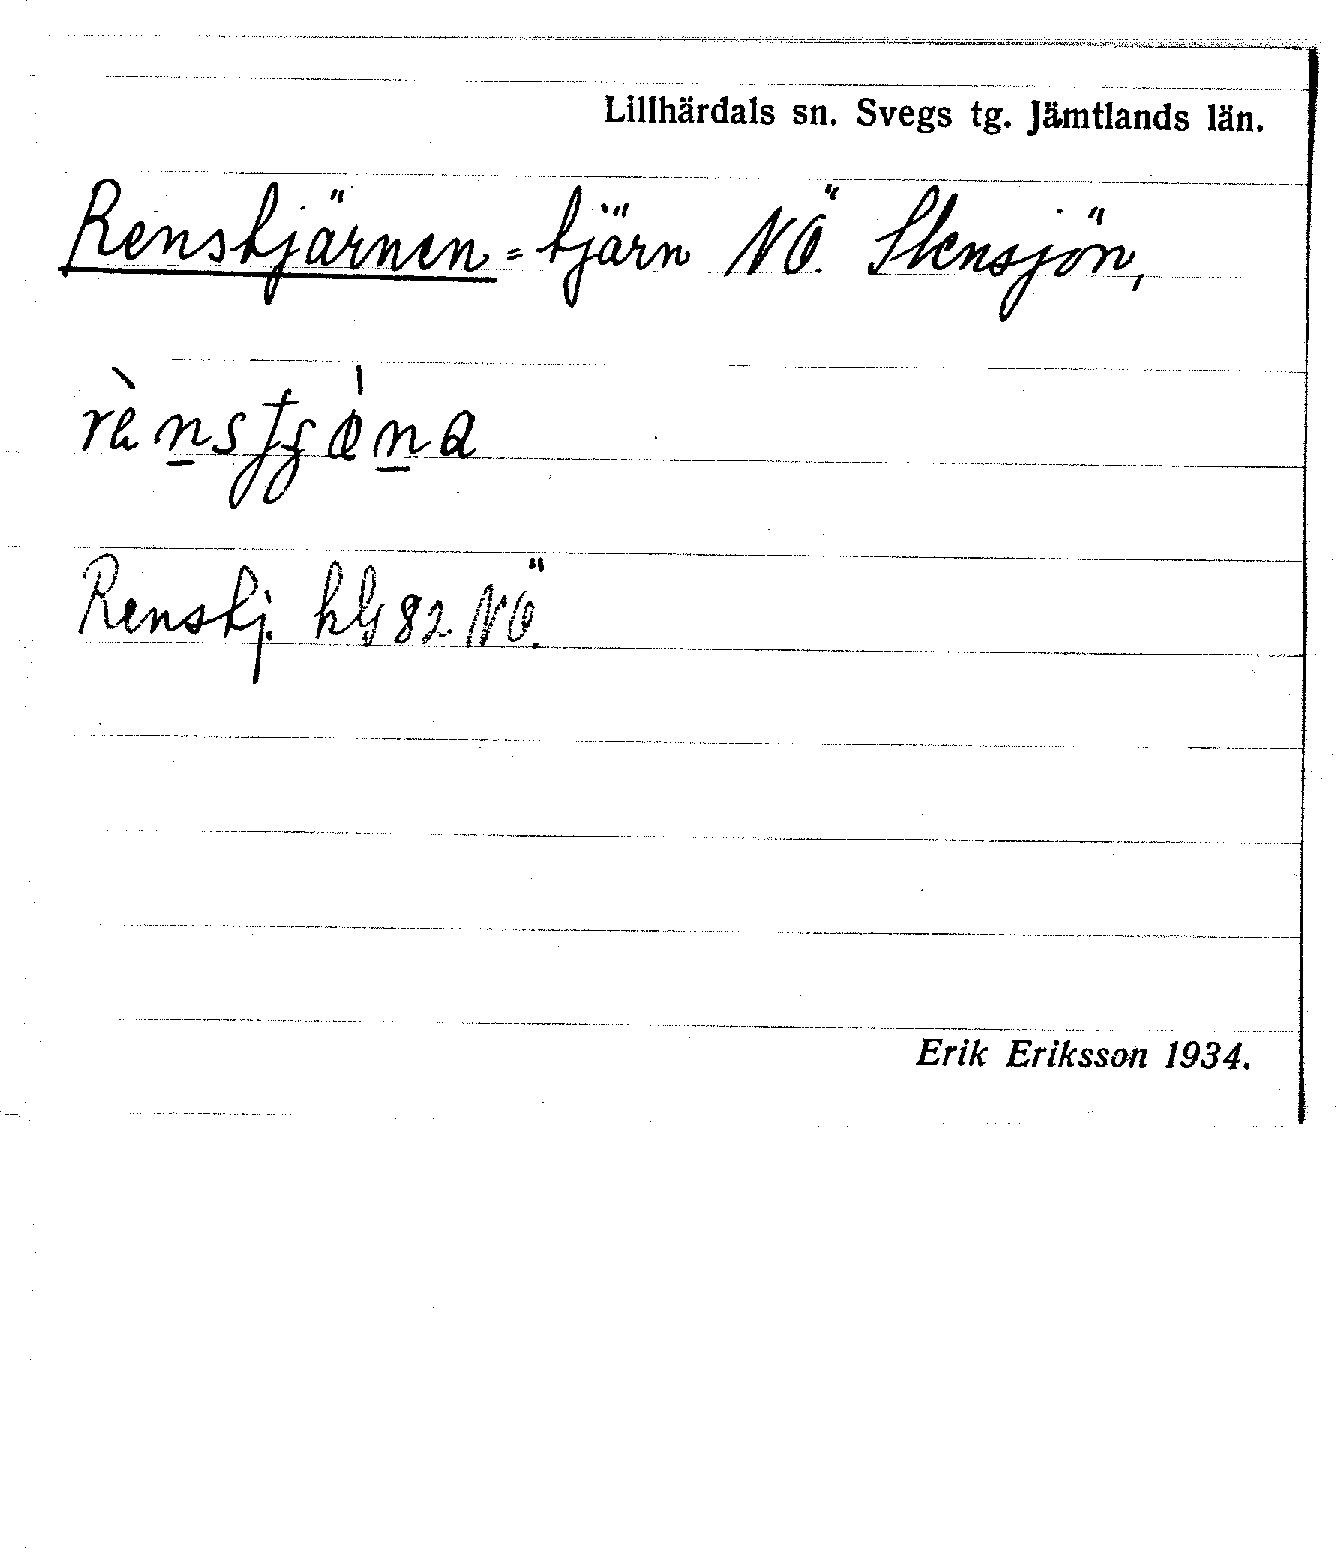 Lillhärdals sn. Svegs tg. Jämtlands län.
Renstjärnen = tjärn NÖ. Stensjön,
Renstj. kbl 82 NÖ.
Erik Eriksson 1934.